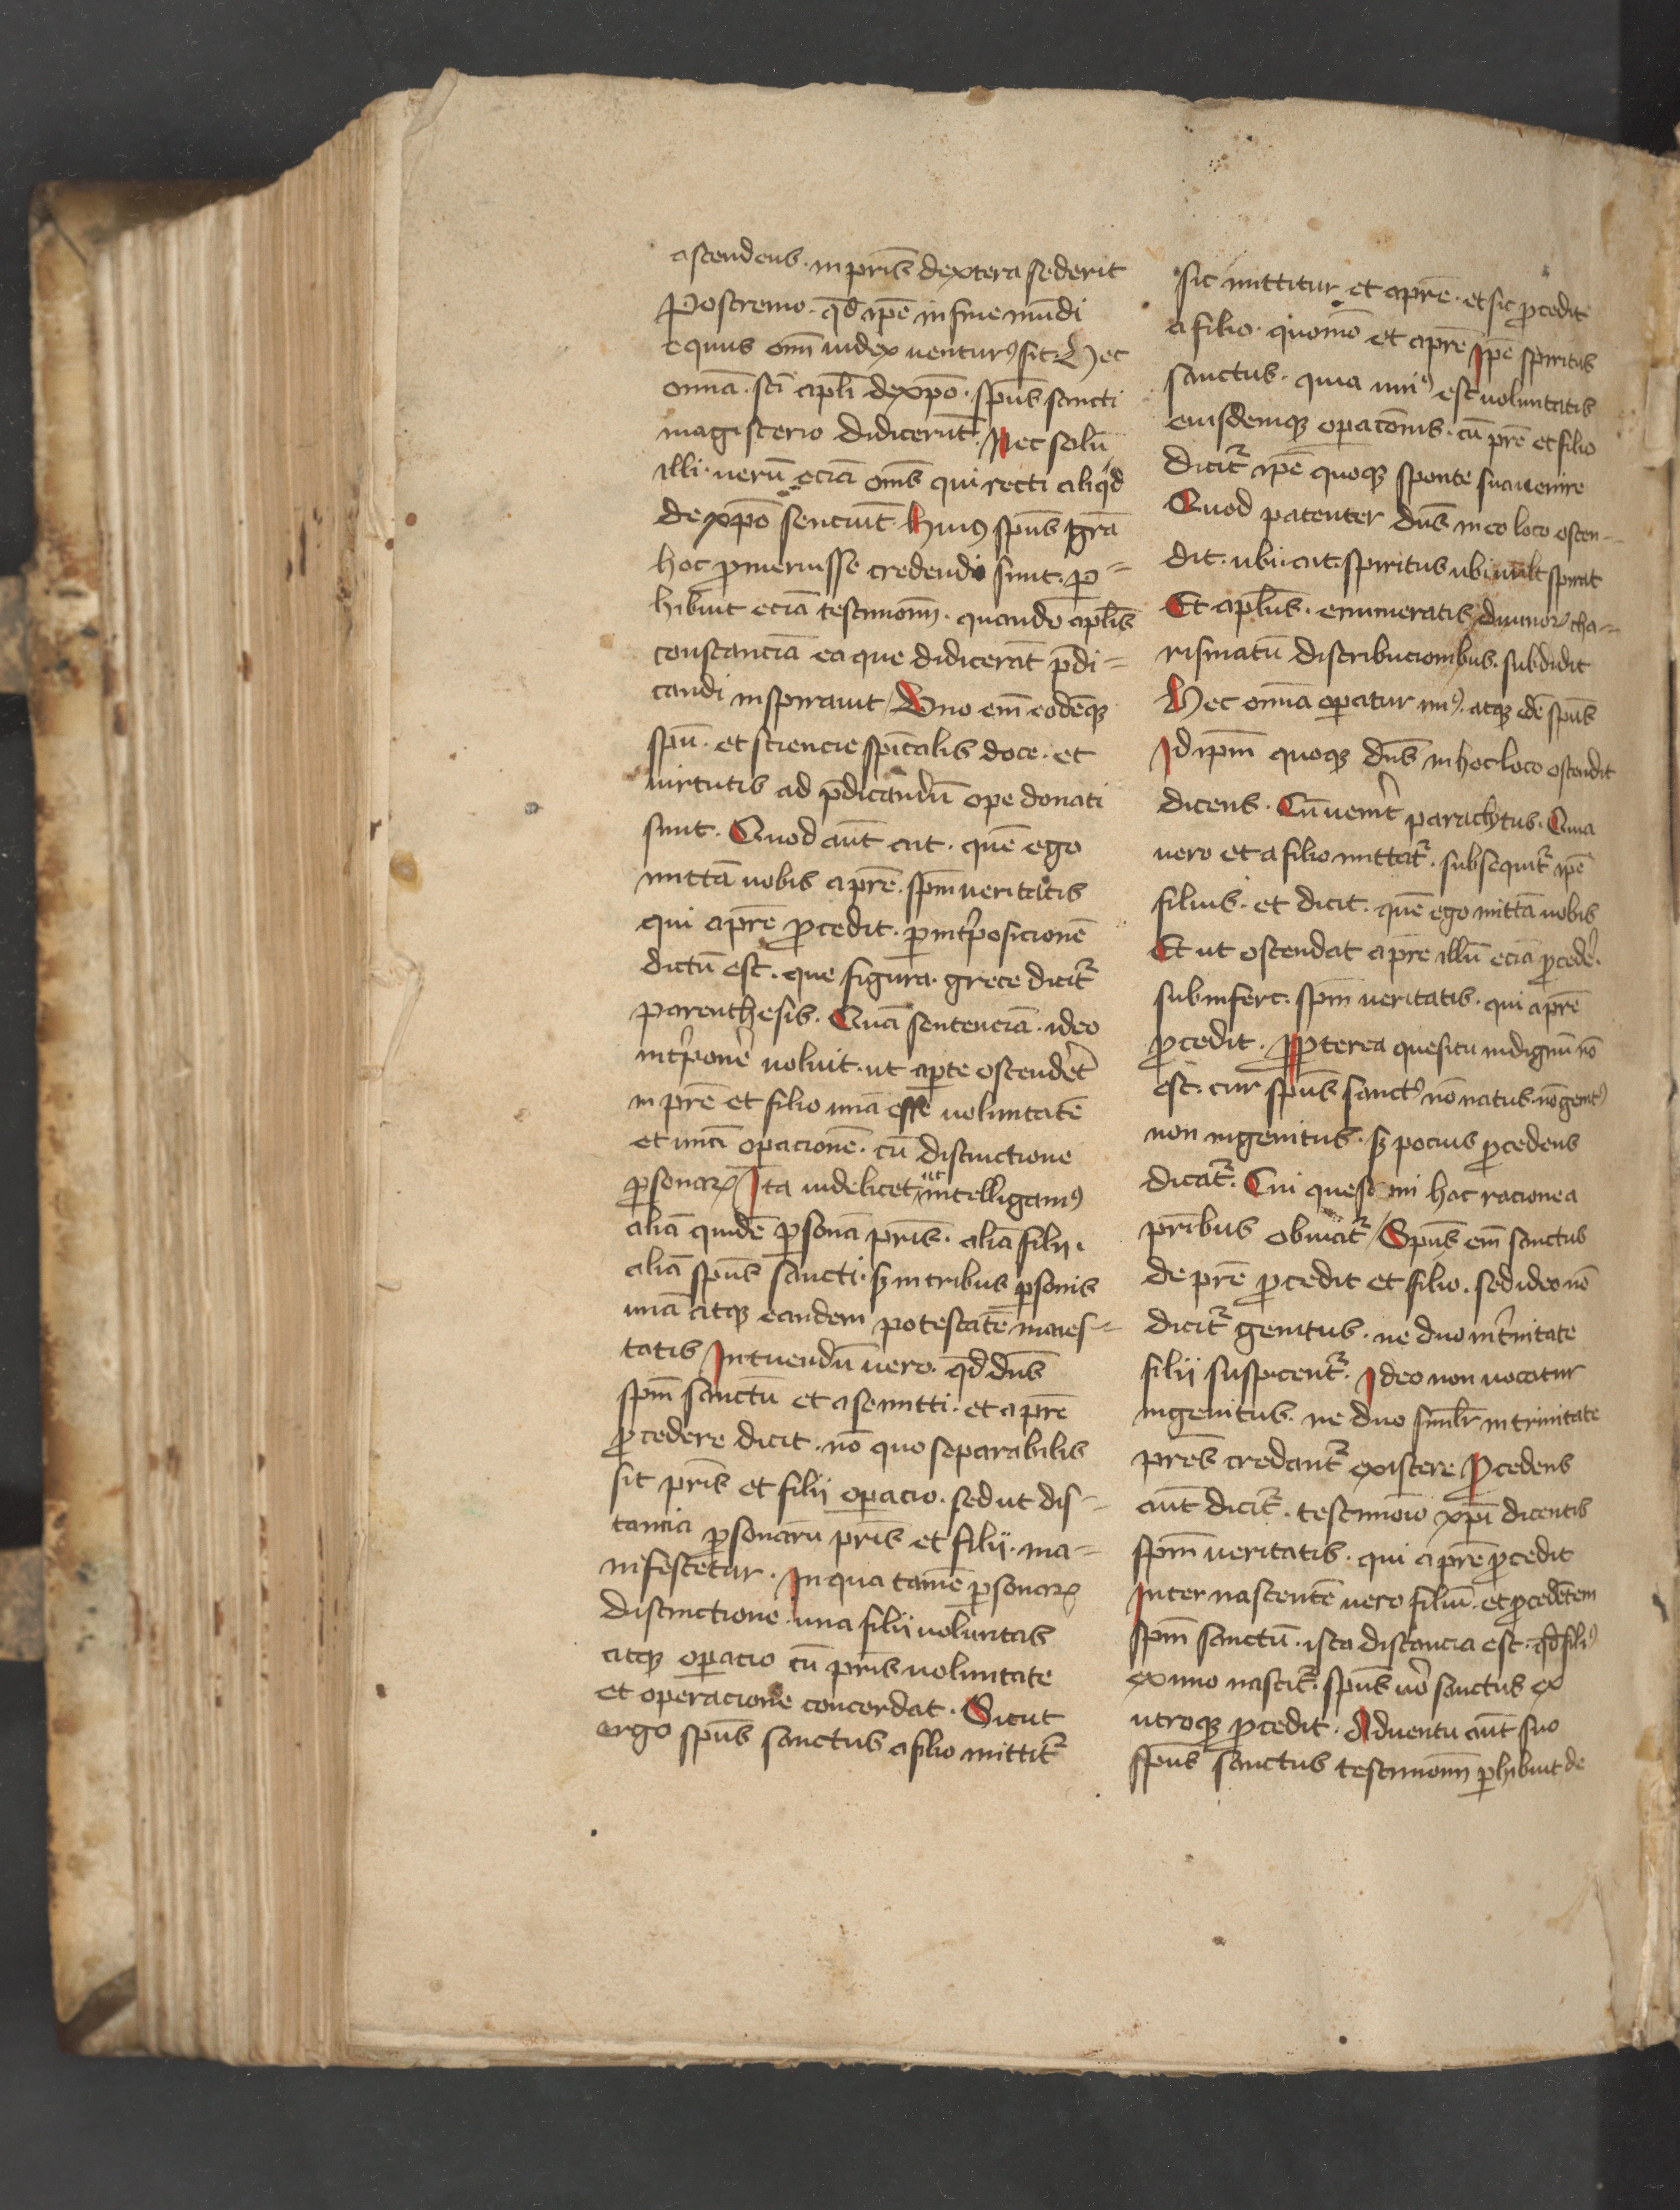 ascendens · in pr̄is dextera sederit
Postremo · qd̄ ip̄e in fine mūdi
equus om̄ iudex venturꝰ sit · Hec
om̄ia · sc̄i apl̄i de xp̄o · sp̄us sancti
magisterio didicerūt · Nec solū
illi · verū eciā om̄s qui recti aliqd
de xp̄o senciūt · Huiꝰ sp̄us gr̄a
hoc ꝓmeruisse credendi sunt · ꝑ=
hibuit eciā testimoniū · quando apl̄is
constanciā ea que didicerāt p̄di=
candi inspirauit / Uno em̄ eodēqꝫ
sp̄u · et sciencie sp̄italis doce · et
virtutis ad p̄dicandū ope donati
sunt · Quod aūt ait · quē ego
mittā vobis a pr̄e · sp̄m veritatis
qui a pr̄e ꝓcedit · ꝑ int̄posicionē
dictū est · que figura · grece dicit̄
parenthesis · Quā sentenciā · ideo
int̄poner̄ voluit · ut aꝑte ostender̄t
in pr̄e et filio unā esse voluntatē
et unā opacionē · cū distinctione
ꝑsonarꝝ Ita videlicet ut intelligamꝰ
aliā quidē ꝑsonā pr̄is · aliā filii ·
aliā sp̄us sancti · sꝫ in tribus ꝑsonis
unā atqꝫ eandem potestatē maies=
tatis Intuendū vero · qd̄ dn̄s
sp̄m sanctū et a se mitti · et a pr̄e
ꝓcedere dicit · nō quo separabilis
sit pr̄is et filii oꝑacio · sed ut dis=
tancia ꝑsonarū pr̄is et filii · ma=
nifestetur · In qua tamē ꝑsonarꝝ
distinctione · una filii voluntas
atqꝫ oꝑacio cū pr̄is voluntate
et operacione concordat · Sicut
ergo sp̄us sanctus a filio mittit̄
sic mittitur et a pr̄e · et sic ꝓcedit
a filio · quomō et a pr̄e Ip̄e spiritus
sanctus · quia uniꝰ est voluntatis
eiusdemqꝫ oꝑacōnis · cū pr̄e et filio
dicit̄ ip̄e quoqꝫ sponte sua venire
Quod patenter dn̄s in eo loco osten=
dit · ubi ait · spiritus ubi vult spirat
Et apl̄us · enumeratis diuinorꝝ cha=
rismatū distribucionibus · subdidit
Hec om̄ia oꝑatur unꝰ · atqꝫ idē sp̄us
Id ip̄m quoqꝫ dn̄s in hoc loco ostendit
dicens · Cū uenerit paraclytus · Quia
vero et a filio mittat̄ · subsequit̄ ip̄e
filius · et dicit · quē ego mittā vobis
Et ut ostendat a pr̄e illū eciā ꝓceder̄ ·
subinfert · sp̄m veritatis · qui a pr̄e
ꝓcedit · Propterea quesitu indignū nō
est · cur sp̄us sanctꝰ nō natus · nō genitꝰ
non ingenitus · sꝫ pocius ꝓcedens
dicat̄ · Cui questioni hac racione a
pr̄ibus obuiat̄ / Sp̄us em̄ sanctus
de pr̄e ꝓcedit et filio · sed ideo nō
dicit̄ genitus · ne duo in t̄nitate
filii suspicent̄ · Ideo non vocatur
ingenitus · ne duo simil̄r in trinitate
pr̄es credant̄ existere Procedens
aūt dicit̄ · testimonio xp̄i dicentis
sp̄m veritatis · qui a pr̄e ꝓcedit
Inter nascentē vero filiū · et ꝓcedētem
sp̄m sanctū · ista distancia est · qd̄ filiꝰ
ex uno nascit̄ · sp̄us vō sanctus ex
utroqꝫ ꝓcedit · Aduentu aūt suo
sp̄us sanctus testimoniū ꝑhibuit de